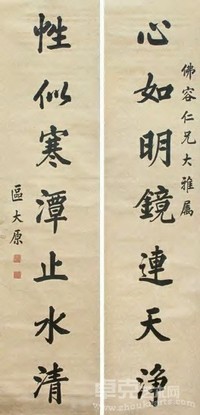 佛容仁兄大雅属
心如明鏡連天净
性似寒潭止水清
區大原